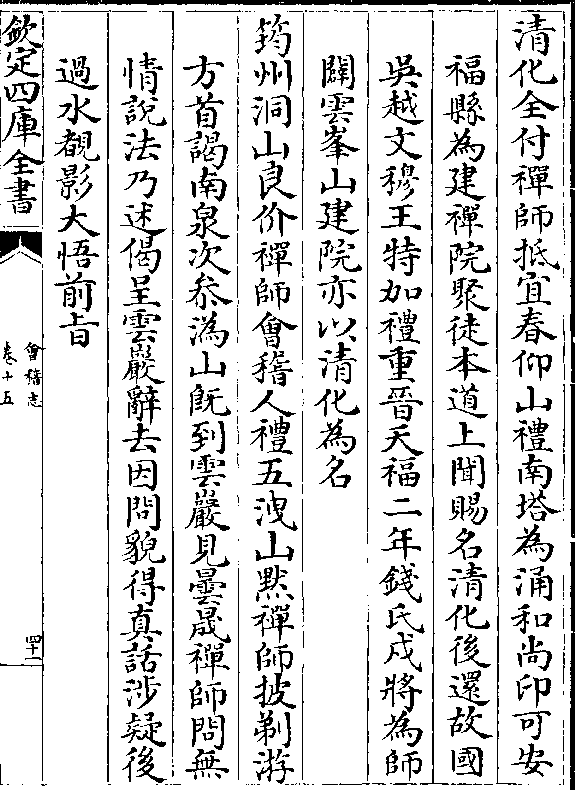 清化全付禪師抵宜春仰山禮南塔為涌和尚印可安
福縣為建禪院聚徒本道上聞賜名清化後還故國
吳越文穆王特加禮重晉天福二年錢氏戍將為師
闢雲峯山建院亦以清化為名
筠州洞山良价禪師會稽人禮五洩山黙禪師披剃游
方首謁南泉次叅溈山旣到雲巖見曇晟禪師問無
情說法乃述偈呈雲巖辭去因問貌得真話涉疑後
過水覩影大悟前㫖
欽定四庫全書
會稽志
卷十五
四十二